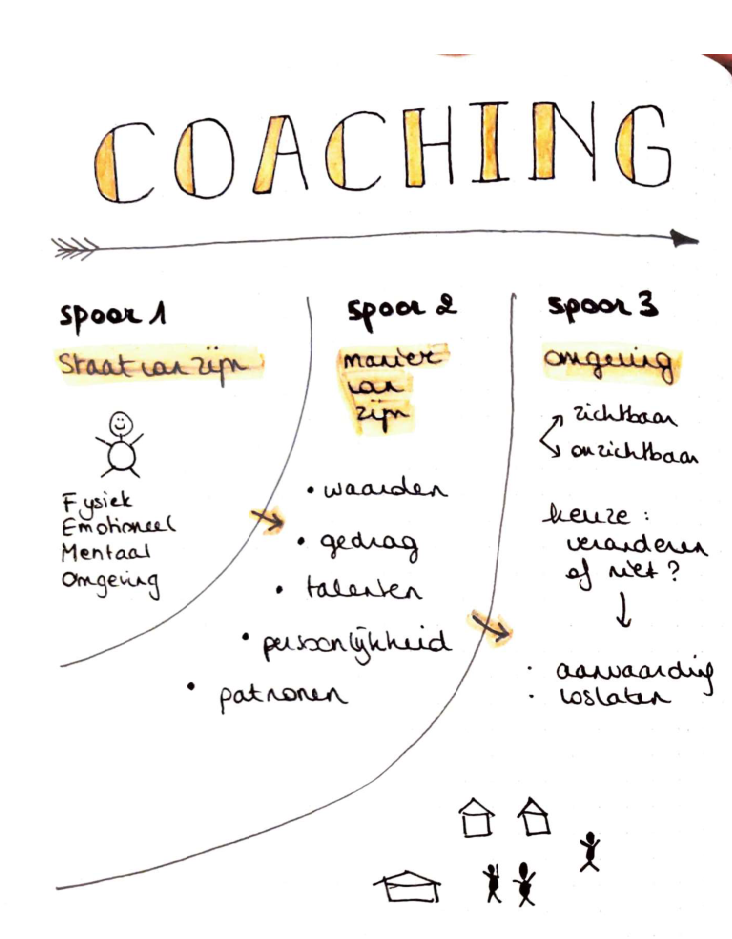 COACHING
spoor 1
Staat van zijn
Fysiek
Emotioneel
Mentaal
Omgeving
spoor 2
manier
van
zijn
• waarden
• gedrag
• talenten
• persoonlijkheid
• patronen
spoor 3
omgeving
zichtbaar
onzichtbaar
keuze :
veranderen
of niet ?
• aanvaarding
• loslaten